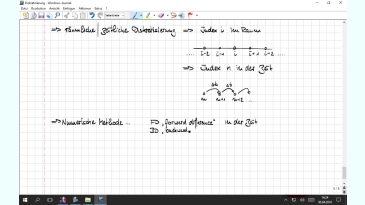 Diskretisierung - Windows-Journal
Datei Bearbeiten Ansicht Einfügen Aktionen Extras ?
⇒ räumliche / zeitliche Diskretisierung ⇒ Index i im Raum
i-2 i-1 i i+1 i+2
⇒ Index n in der Zeit
Δt Δt
n n+1 n+2
⇒ Numerische Methode ... FD „forward difference" in der Zeit
BD „backward